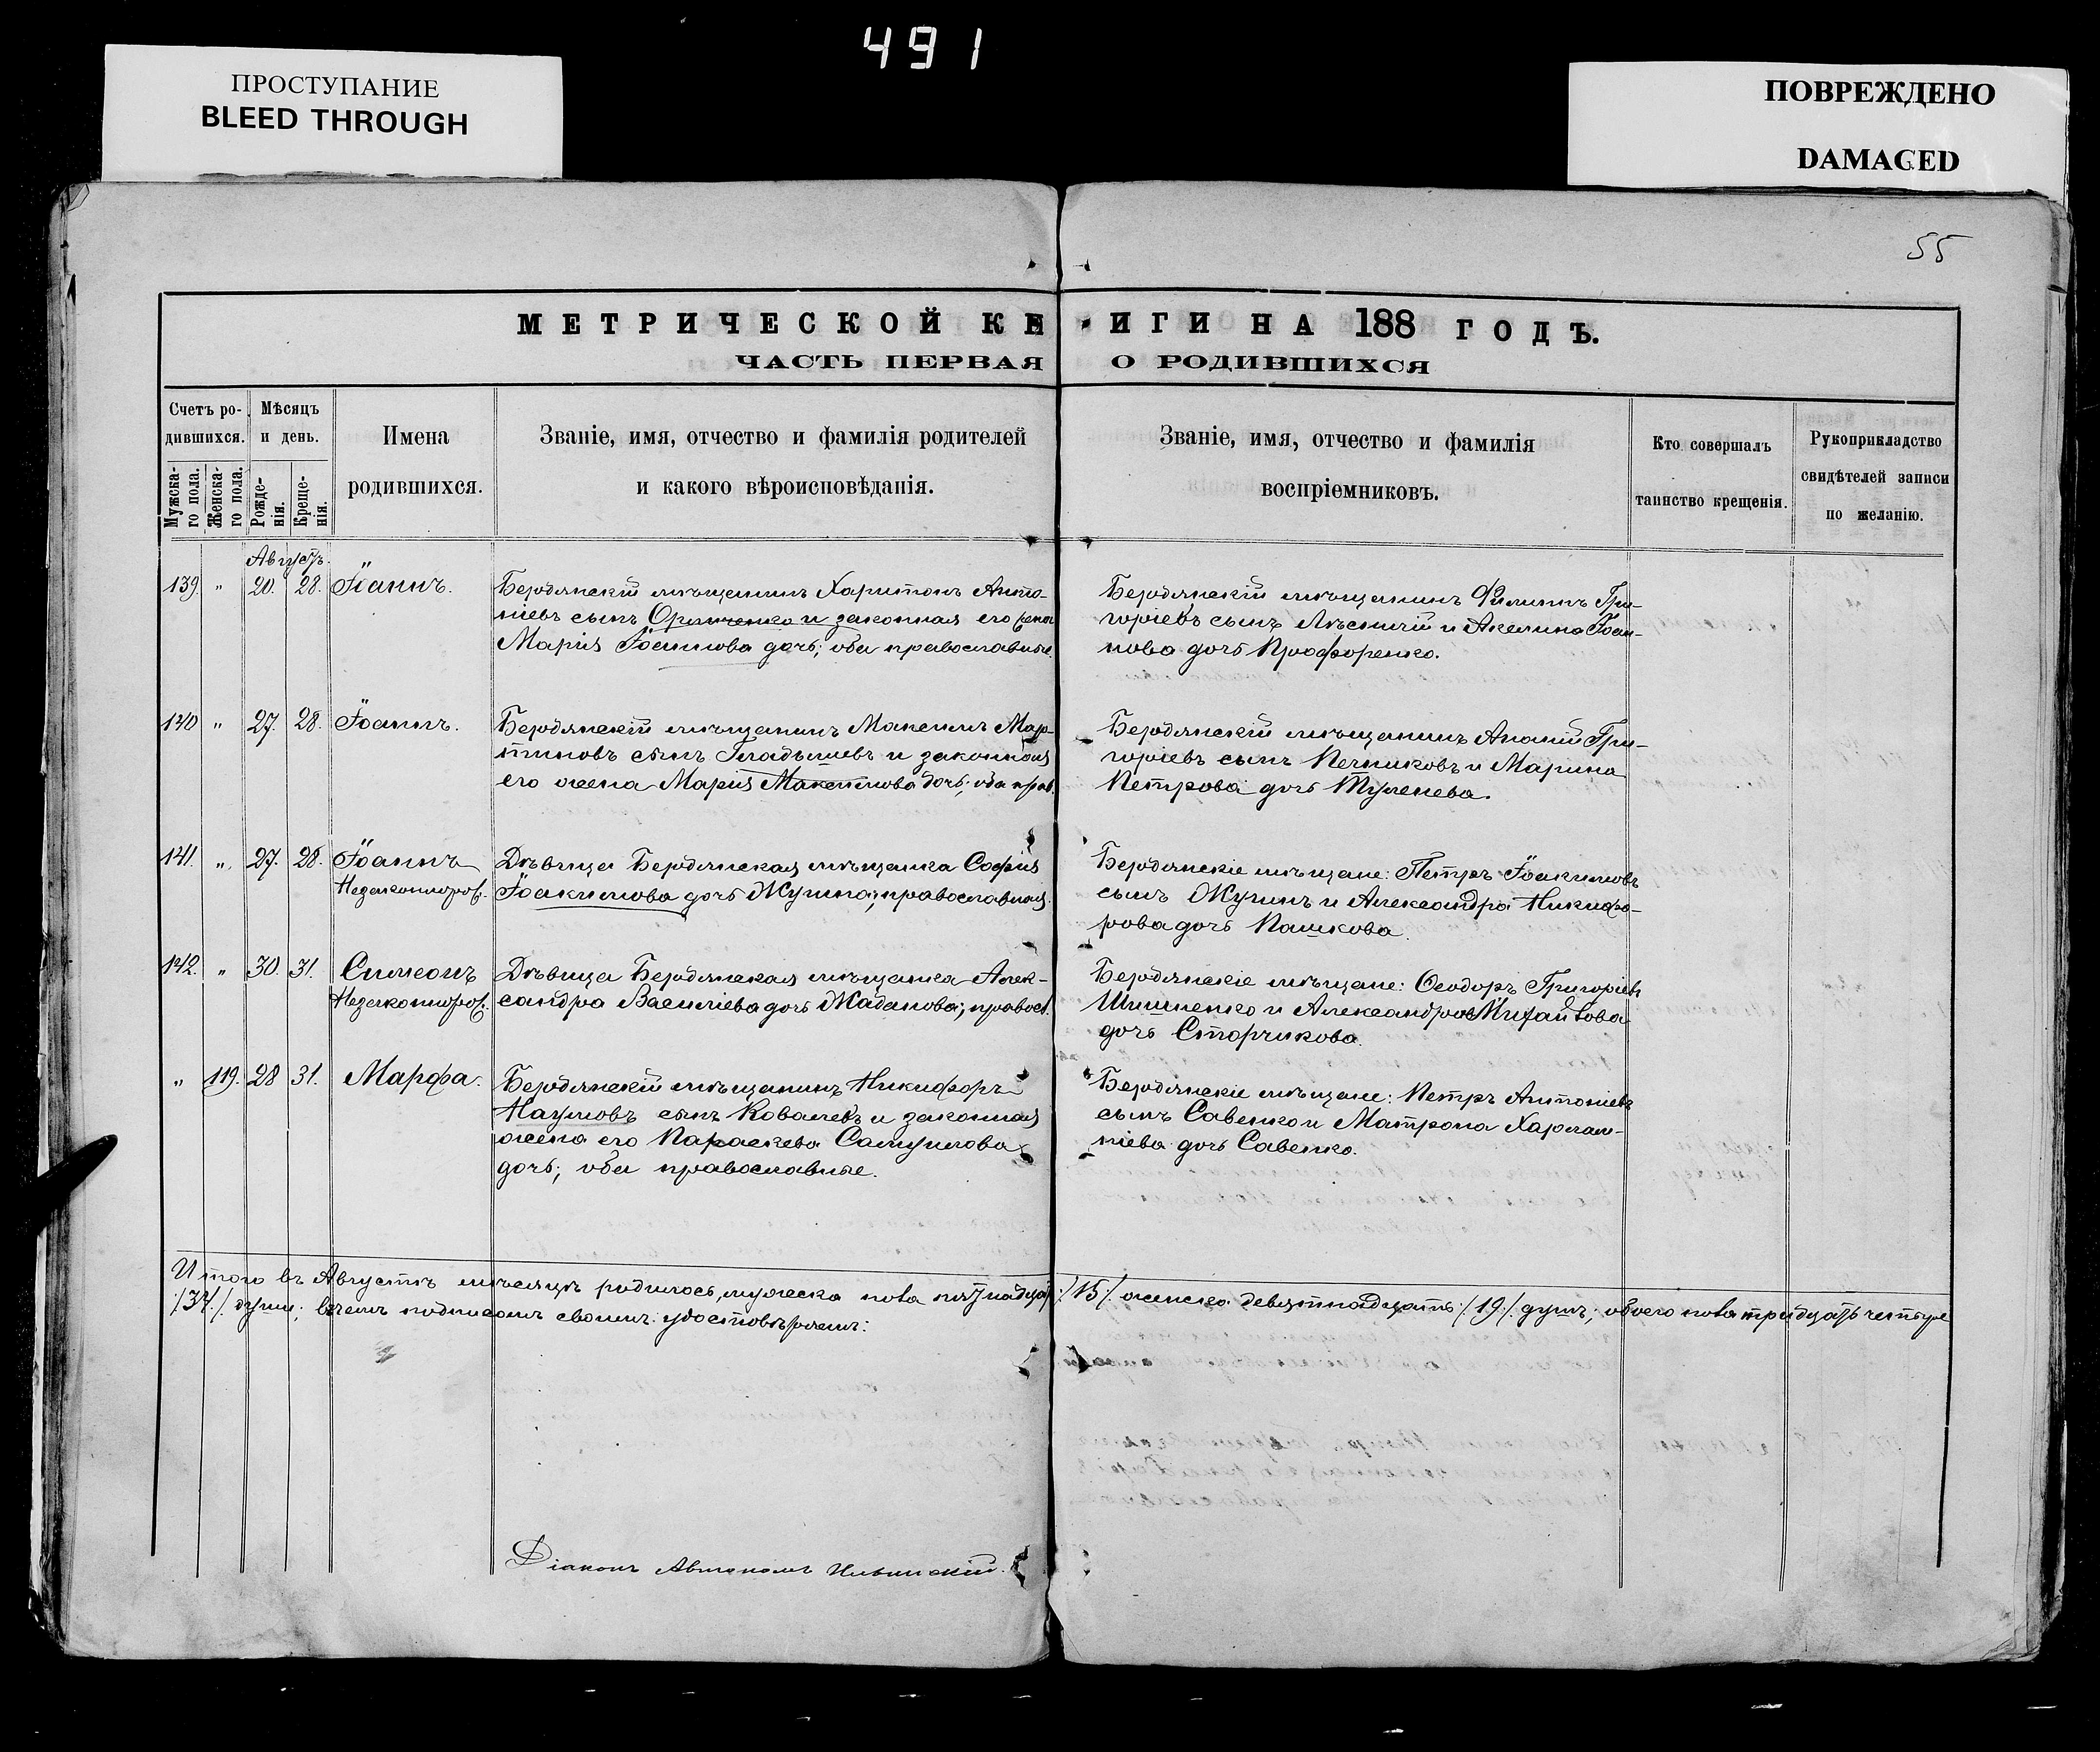 491
ПРОСТУПАНИЕ
BLEED THROUGH
ПОВРЕЖДЕНО
DAMAGED
55
МЕТРИЧЕСКОЙ КНИГИ НА 188 ГОДЪ.
ЧАСТЬ ПЕРВАЯ О РОДИВШИХСЯ
Счетъ ро-
дившихся.
Мужска-
го пола.
Женска-
го пола.
Мѣсяцъ
и день.
Рожде-
нія.
Креще-
нія.
Имена
родившихся.
Званіе, имя, отчество и фамилія родителей
и какого вѣроисповѣданія.
Званіе, имя, отчество и фамилія
воспріемниковъ.
Кто совершалъ
таинство крещенія.
Рукоприкладство
свидѣтелей записи
по желанію.
Августъ.
139. " 20. 28. Іоаннъ.
Бердянскій мѣщанинъ Харитонъ Анто-
ніевъ сынъ и законная его жена
Марія дочь; оба православные.
Бердянскій мѣщанинъ Филиппъ Гри-
горіевъ сынъ и Акелина Іоан-
нова дочь Профоренко.
140 " 27. 28. Іоаннъ.
Бердянскій мѣщанинъ Максимъ Мар-
тиновъ сынъ Гладышевъ и законная
его жена Марія Максимова дочь; оба прав.
Бердянскій мѣщанинъ Ананій Гри-
горіевъ сынъ Печниковъ и Марина
Петрова дочь Туленева.
141. " 27. 28. Іоаннъ
Незаконнорож.
Дѣвица Бердянская мѣщанка Софія
Іоакимова дочь Жунина; православная.
Бердянскіе мѣщане: Петръ Іоакимовъ
сынъ Жунинъ и Александра Никифо-
рова дочь Пашкова.
142. " 30. 31. Симеонъ
Незаконнорож.
Дѣвица Бердянская мѣщанка Алек-
сандра Василіева дочь Жаданова; правосл.
Бердянскіе мѣщане: Ѳеодоръ Григоріевъ
Шишненко и Александра Михайлова
дочь Сторчикова.
" 119. 28 31. Марфа.
Бердянскій мѣщанинъ Никифоръ
Наумовъ сынъ Ковалевъ и законная
жена его Параскева Самуилова
дочь; оба православные.
Бердянскіе мѣщане: Петръ Антоніевъ
сынъ Савенко и Матрона Харлам-
піева дочь Савенко.
Итого въ Августѣ мѣсяцѣ родилось, мужеска пола пятнадцать /:15:/ женска девятнадцать /:19:/ душъ; обоего пола тридцать четыре
/:34:/ души; въ чемъ подписомъ своимъ удостовѣряемъ:
Діаконъ Автономъ Ильинскій.